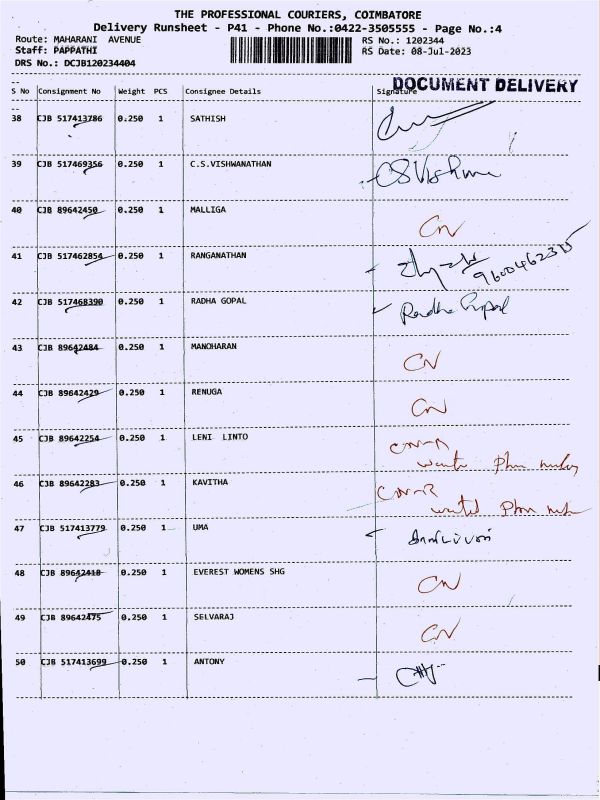 THE PROFESSIONAL COURIERS, COIMBATORE
Delivery Runsheet - P41 - Phone No.:0422-3505555 - Page No.:4
Route: MAHARANI AVENUE RS No.: 1202344
Staff: PAPPATHI RS Date: 08-Jul-2023
DRS No.: DCJB120234404
DOCUMENT DELIVERY
S No Consignment No Weight PCS Consignee Details Signature
38 CJB 517413786 0.250 1 SATHISH
39 CJB 517469356 0.250 1 C.S.VISHWANATHAN CSVishwa
40 CJB 89642450 0.250 1 MALLIGA CN
41 CJB 517462854 0.250 1 RANGANATHAN
42 CJB 517468390 0.250 1 RADHA GOPAL Radha Gopal
43 CJB 89642484 0.250 1 MANOHARAN CN
44 CJB 89642429 0.250 1 RENUGA CN
45 CJB 89642254 0.250 1 LENI LINTO
46 CJB 89642283 0.250 1 KAVITHA
wanted Phon
47 CJB 517413779 0.250 1 UMA
48 CJB 89642418 0.250 1 EVEREST WOMENS SHG CN
49 CJB 89642475 0.250 1 SELVARAJ CN
50 CJB 517413699 0.250 1 ANTONY